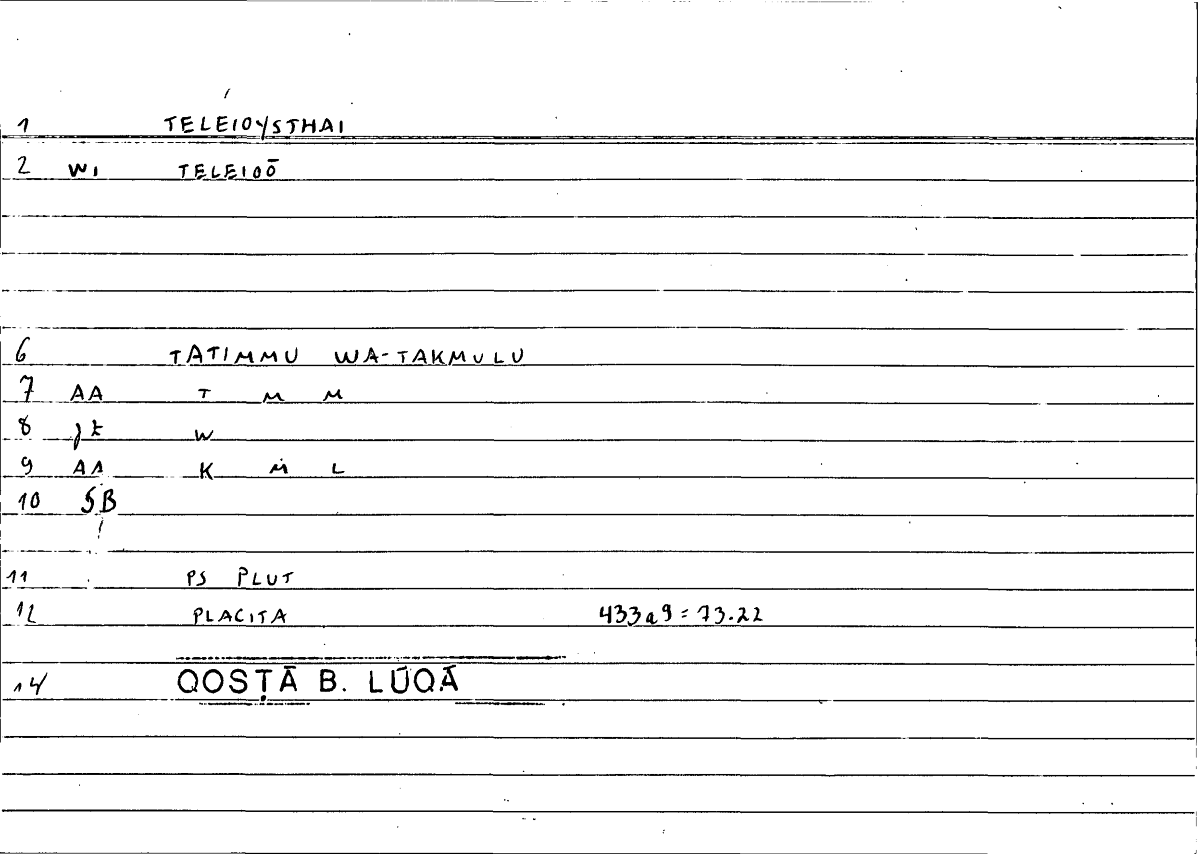 1 TELEIOYSTHAI
2 WI TELEIOŌ
6 TATIMMU WA-TAKMULU
7 AA T M M
8 W
9 AA K M L
10 SB
11 PS PLUT
12 PLACITA 433a9=73.22
14 QOSṬĀ B. LŪQĀ